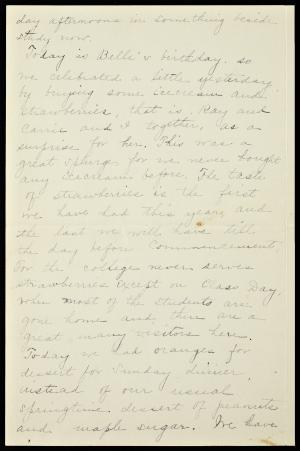 day afternoons in something beside
study now.
Today is Belle's birthday. so
we celebrated a little yesterday
by buying some icecream and
strawberries, that is, Ray and
Carrie and I together, as a
surprise for her. This was a
great splurge for we never bought
any Icecream before. The taste
of strawberries is the first
we have had this year, and
the last we will have till
the day before Commencement.
For the college never serves
strawberries except on Class Day,
when most of the students are
gone home and there are a
great many visitors here.
Today we had oranges for
dessert for Sunday dinner,
instead of our usual
springtime dessert of peanuts
and maple sugar. We have